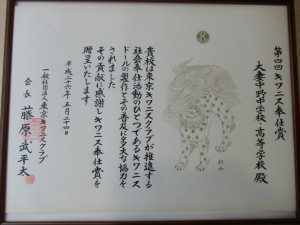 第四回キワニス奉仕賞
大妻中野中学校・高等学校 殿
貴校は東京キワニスクラブが推進する
社会奉仕活動のひとつであるキワニス
ドールの製作とその普及に多大な協力を
されました
その貢献に感謝しキワニス奉仕賞を
贈呈いたします
平成二十六年五月二十四日
一般社団法人東京キワニスクラブ
会長 藤原武平太